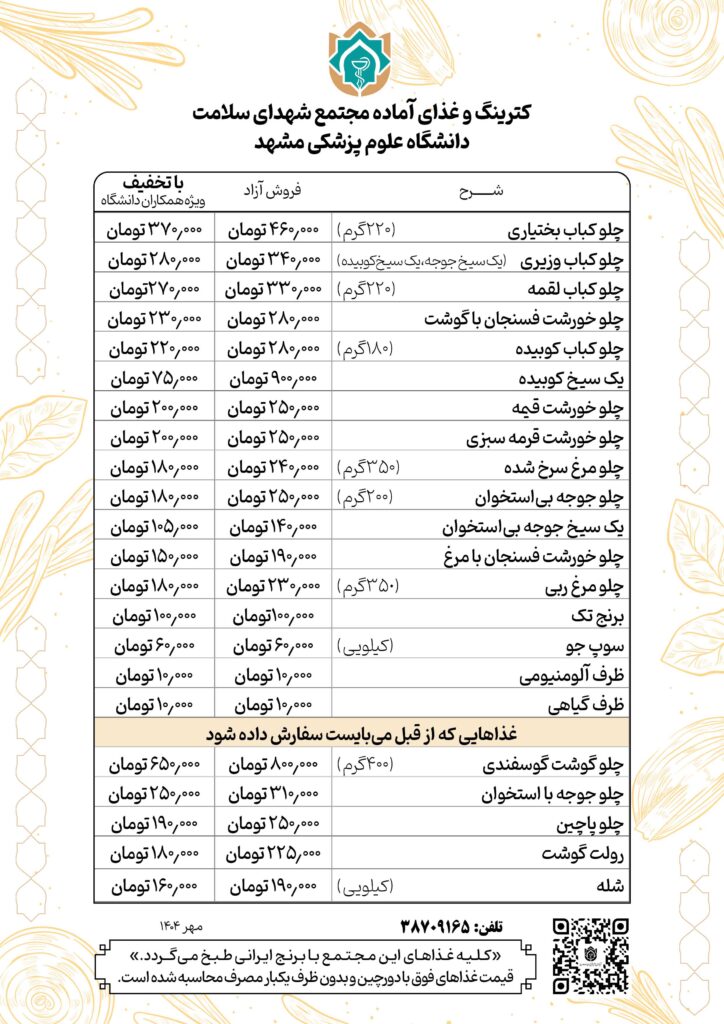 کترینگ و غذای آماده مجتمع شهدای سلامت
دانشگاه علوم پزشکی مشهد
شــــرح فروش آزاد با تخفیف ویژه همکاران دانشگاه
چلو کباب بختیاری (۲۲۰گرم) ۴۶۰٫۰۰۰ تومان ۳۷۰٫۰۰۰ تومان
چلو کباب وزیری (یک سیخ جوجه، یک سیخ کوبیده) ۳۴۰٫۰۰۰ تومان ۲۸۰٫۰۰۰ تومان
چلو کباب لقمه (۲۲۰گرم) ۳۳۰٫۰۰۰ تومان ۲۷۰٫۰۰۰ تومان
چلو خورشت فسنجان با گوشت ۲۸۰٫۰۰۰ تومان ۲۳۰٫۰۰۰ تومان
چلو کباب کوبیده (۱۸۰گرم) ۲۸۰٫۰۰۰ تومان ۲۲۰٫۰۰۰ تومان
یک سیخ کوبیده ۹۰۰٫۰۰۰ تومان ۷۵٫۰۰۰ تومان
چلو خورشت قیمه ۲۵۰٫۰۰۰ تومان ۲۰۰٫۰۰۰ تومان
چلو خورشت قرمه سبزی ۲۵۰٫۰۰۰ تومان ۲۰۰٫۰۰۰ تومان
چلو مرغ سرخ شده (۳۵۰گرم) ۲۴۰٫۰۰۰ تومان ۱۸۰٫۰۰۰ تومان
چلو جوجه بی‌استخوان (۲۰۰گرم) ۲۵۰٫۰۰۰ تومان ۱۸۰٫۰۰۰ تومان
یک سیخ جوجه بی‌استخوان ۱۴۰٫۰۰۰ تومان ۱۰۵٫۰۰۰ تومان
چلو خورشت فسنجان با مرغ ۱۹۰٫۰۰۰ تومان ۱۵۰٫۰۰۰ تومان
چلو مرغ ربی (۳۵۰گرم) ۲۳۰٫۰۰۰ تومان ۱۸۰٫۰۰۰ تومان
برنج تک ۱۰۰٫۰۰۰تومان ۱۰۰٫۰۰۰ تومان
سوپ جو (کیلویی) ۶۰٫۰۰۰ تومان ۶۰٫۰۰۰ تومان
ظرف آلومنیومی ۱۰٫۰۰۰ تومان ۱۰٫۰۰۰ تومان
ظرف گیاهی ۱۰٫۰۰۰ تومان ۱۰٫۰۰۰ تومان
غذاهایی که از قبل می‌بایست سفارش داده شود
چلو گوشت گوسفندی (۴۰۰گرم) ۸۰۰٫۰۰۰ تومان ۶۵۰٫۰۰۰ تومان
چلو جوجه با استخوان ۳۱۰٫۰۰۰ تومان ۲۵۰٫۰۰۰ تومان
چلو پاچین ۲۵۰٫۰۰۰ تومان ۱۹۰٫۰۰۰ تومان
رولت گوشت ۲۲۵٫۰۰۰ تومان ۱۸۰٫۰۰۰ تومان
شله (کیلویی) ۱۹۰٫۰۰۰ تومان ۱۶۰٫۰۰۰ تومان
تلفن: ۳۸۷۰۹۱۶۵ مهر ۱۴۰۴
«کلیه غذاهای این مجتمع با برنج ایرانی طبخ می‌گردد.»
قیمت غذاهای فوق با دورچین و بدون ظرف یکبار مصرف محاسبه شده است.